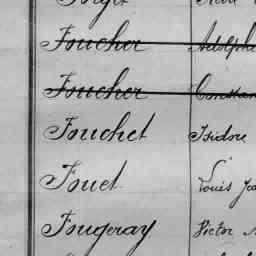 Foucher Adolphe
Foucher Constan
Fouchet Isidore
Fouet Louis
Fougeray Victor